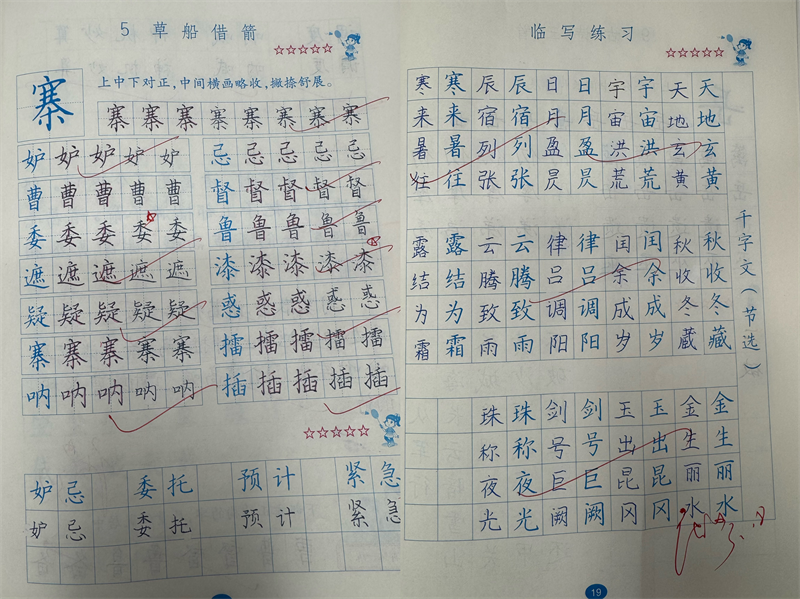 5 草船借箭
寨
上中下对正,中间横画略收,撇捺舒展。
寨寨寨寨寨寨寨寨
妒妒妒妒妒 忌忌忌忌忌
曹曹曹曹曹 督督督督督
委委委委委 鲁鲁鲁鲁鲁
遮遮遮遮遮 漆漆漆漆漆
疑疑疑疑疑 惑惑惑惑惑
寨寨寨寨寨 擂擂擂擂擂
呐呐呐呐呐 插插插插插
妒忌 委托 预计 紧急
妒忌 委托 预计 紧急
临写练习
寒寒辰辰日日宇宇天天
来来宿宿月月宙宙地地
暑暑列列盈盈洪洪玄玄
往往张张昃昃荒荒黄黄
露露云云律律闰闰秋秋
结结腾腾吕吕余余收收
为为致致调调成成冬冬
霜霜雨雨阳阳岁岁藏藏
珠珠剑剑玉玉金金
称称号号出出生生
夜夜巨巨昆昆丽丽
光光阙阙冈冈水水
千字文(节选)
19